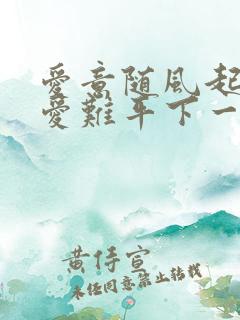 愛意随風起
愛難平下一
黄侍宣
未经同意禁止转载